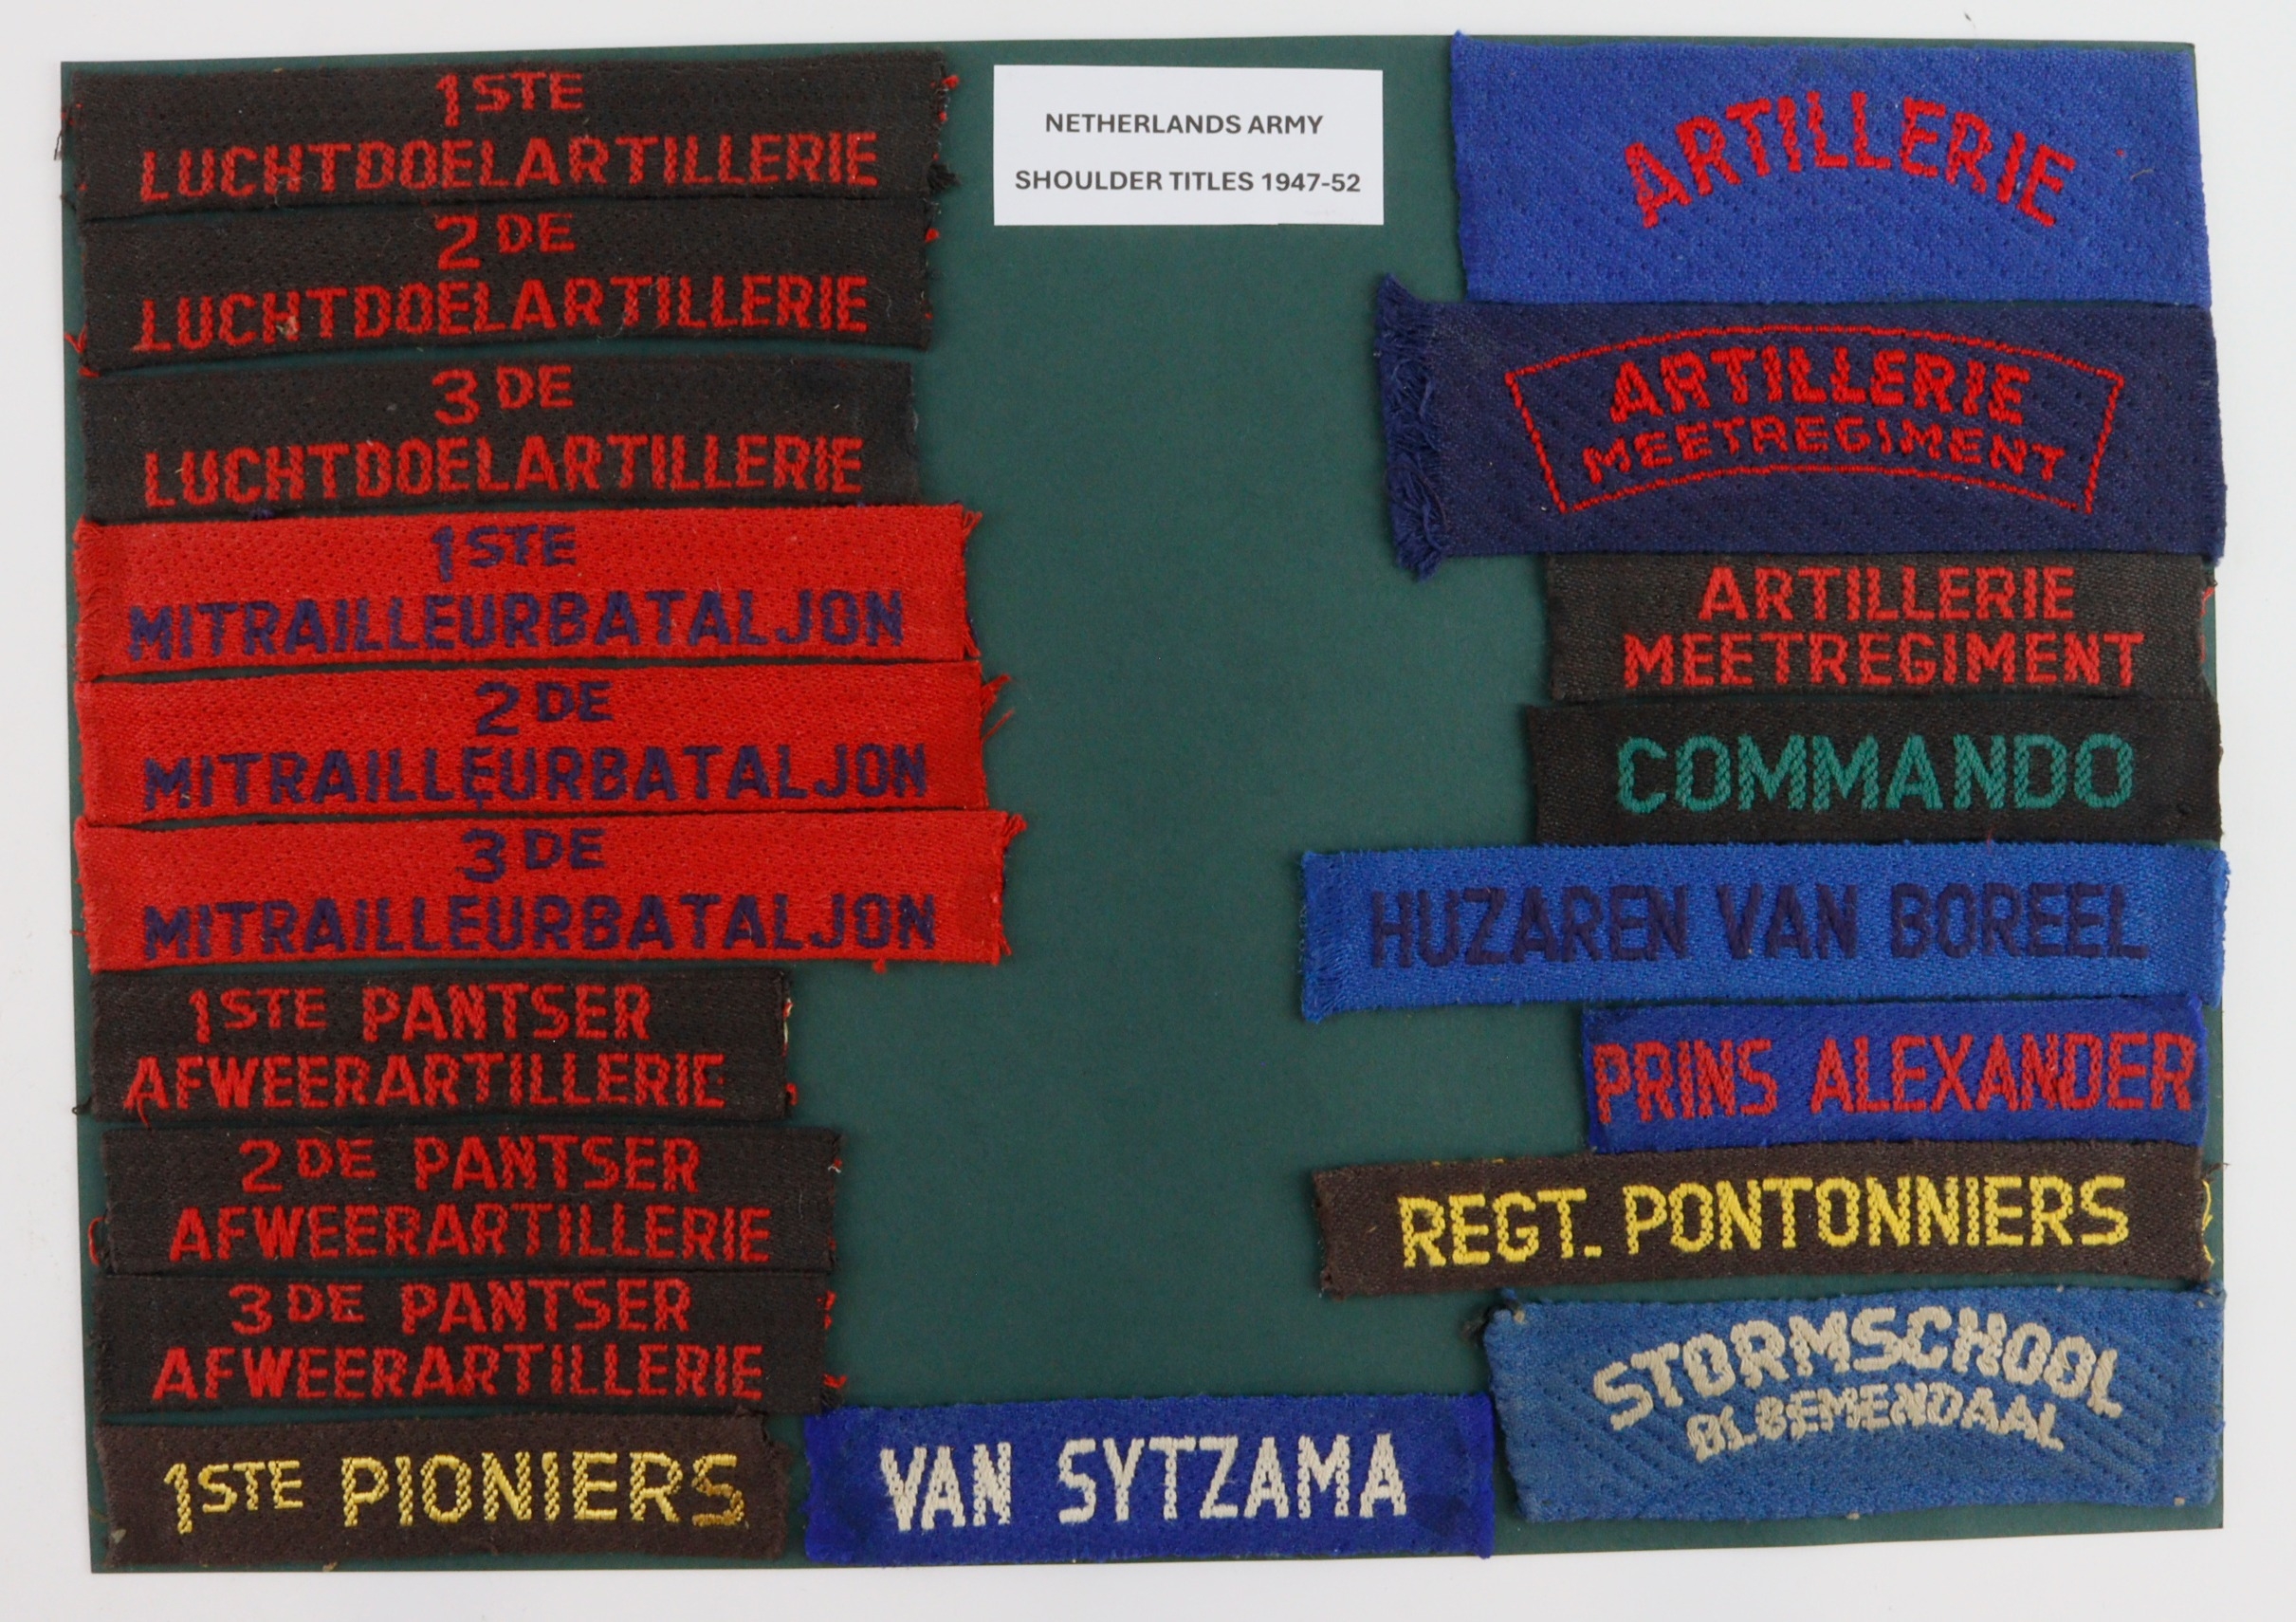 1STE
LUCHTDOELARTILLERIE
2DE
LUCHTDOELARTILLERIE
3DE
LUCHTDOELARTILLERIE
1STE
MITRAILLEURBATALJON
2DE
MITRAILLEURBATALJON
3DE
MITRAILLEURBATALJON
1STE PANTSER
AFWEERARTILLERIE
2DE PANTSER
AFWEERARTILLERIE
3DE PANTSER
AFWEERARTILLERIE
1STE PIONIERS
NETHERLANDS ARMY
SHOULDER TITLES 1947-52
VAN SYTZAMA
ARTILLERIE
ARTILLERIE
MEETREGIMENT
ARTILLERIE
MEETREGIMENT
COMMANDO
HUZAREN VAN BOREEL
PRINS ALEXANDER
REGT. PONTONNIERS
STORMSCHOOL
BLOEMENDAAL